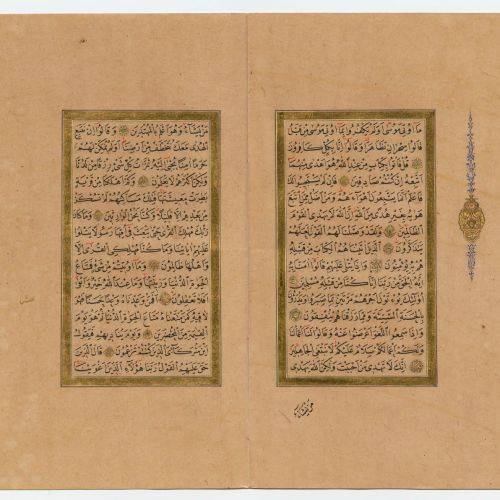 ما اوتي موسى اولم يكفروا بما اوتي موسى من قبل
قالوا سحران تظاهرا وقالوا انا بكل كافرون
قل فأتوا بكتاب من عند الله هو اهدى منهما
اتبعه ان كنتم صادقين فان لم يستجيبوا لك
فاعلم انما يتبعون اهواءهم ومن اضل ممن اتبع
هويه بغير هدى من الله ان الله لا يهدي القوم
الظالمين ولقد وصلنا لهم القول لعلهم
يتذكرون الذين آتيناهم الكتاب من قبله
هم به يؤمنون واذا يتلى عليهم قالوا آمنا به
انه الحق من ربنا انا كنا من قبله مسلمين
اولئك يؤتون اجرهم مرتين بما صبروا ويدرؤن
بالحسنة السيئة ومما رزقناهم ينفقون
واذا سمعوا اللغو اعرضوا عنه وقالوا لنا اعمالنا
ولكم اعمالكم سلام عليكم لا نبتغي الجاهلين
انك لا تهدي من احببت ولكن الله يهدي
من يشاء
من يشاء وهو اعلم بالمهتدين وقالوا ان نتبع
الهدى معك نتخطف من ارضنا اولم نمكن لهم
حرما آمنا يجبى اليه ثمرات كل شيء رزقا من لدنا
ولكن اكثرهم لا يعلمون وكم اهلكنا من قرية
بطرت معيشتها فتلك مساكنهم لم تسكن
من بعدهم الا قليلا وكنا نحن الوارثين وما كان
ربك مهلك القرى حتى يبعث في امها رسولا يتلوا
عليهم آياتنا وما كنا مهلكي القرى الا
واهلها ظالمون وما اوتيتم من شيء فمتاع
الحيوة الدنيا وزينتها وما عند الله خير وابقى
افلا تعقلون افمن وعدناه وعدا حسنا فهو
لاقيه كمن متعناه متاع الحيوة الدنيا ثم هو يوم
القيمة من المحضرين ويوم يناديهم فيقول
اين شركائي الذين كنتم تزعمون قال الذين
حق عليهم القول ربنا هؤلاء الذين اغوينا